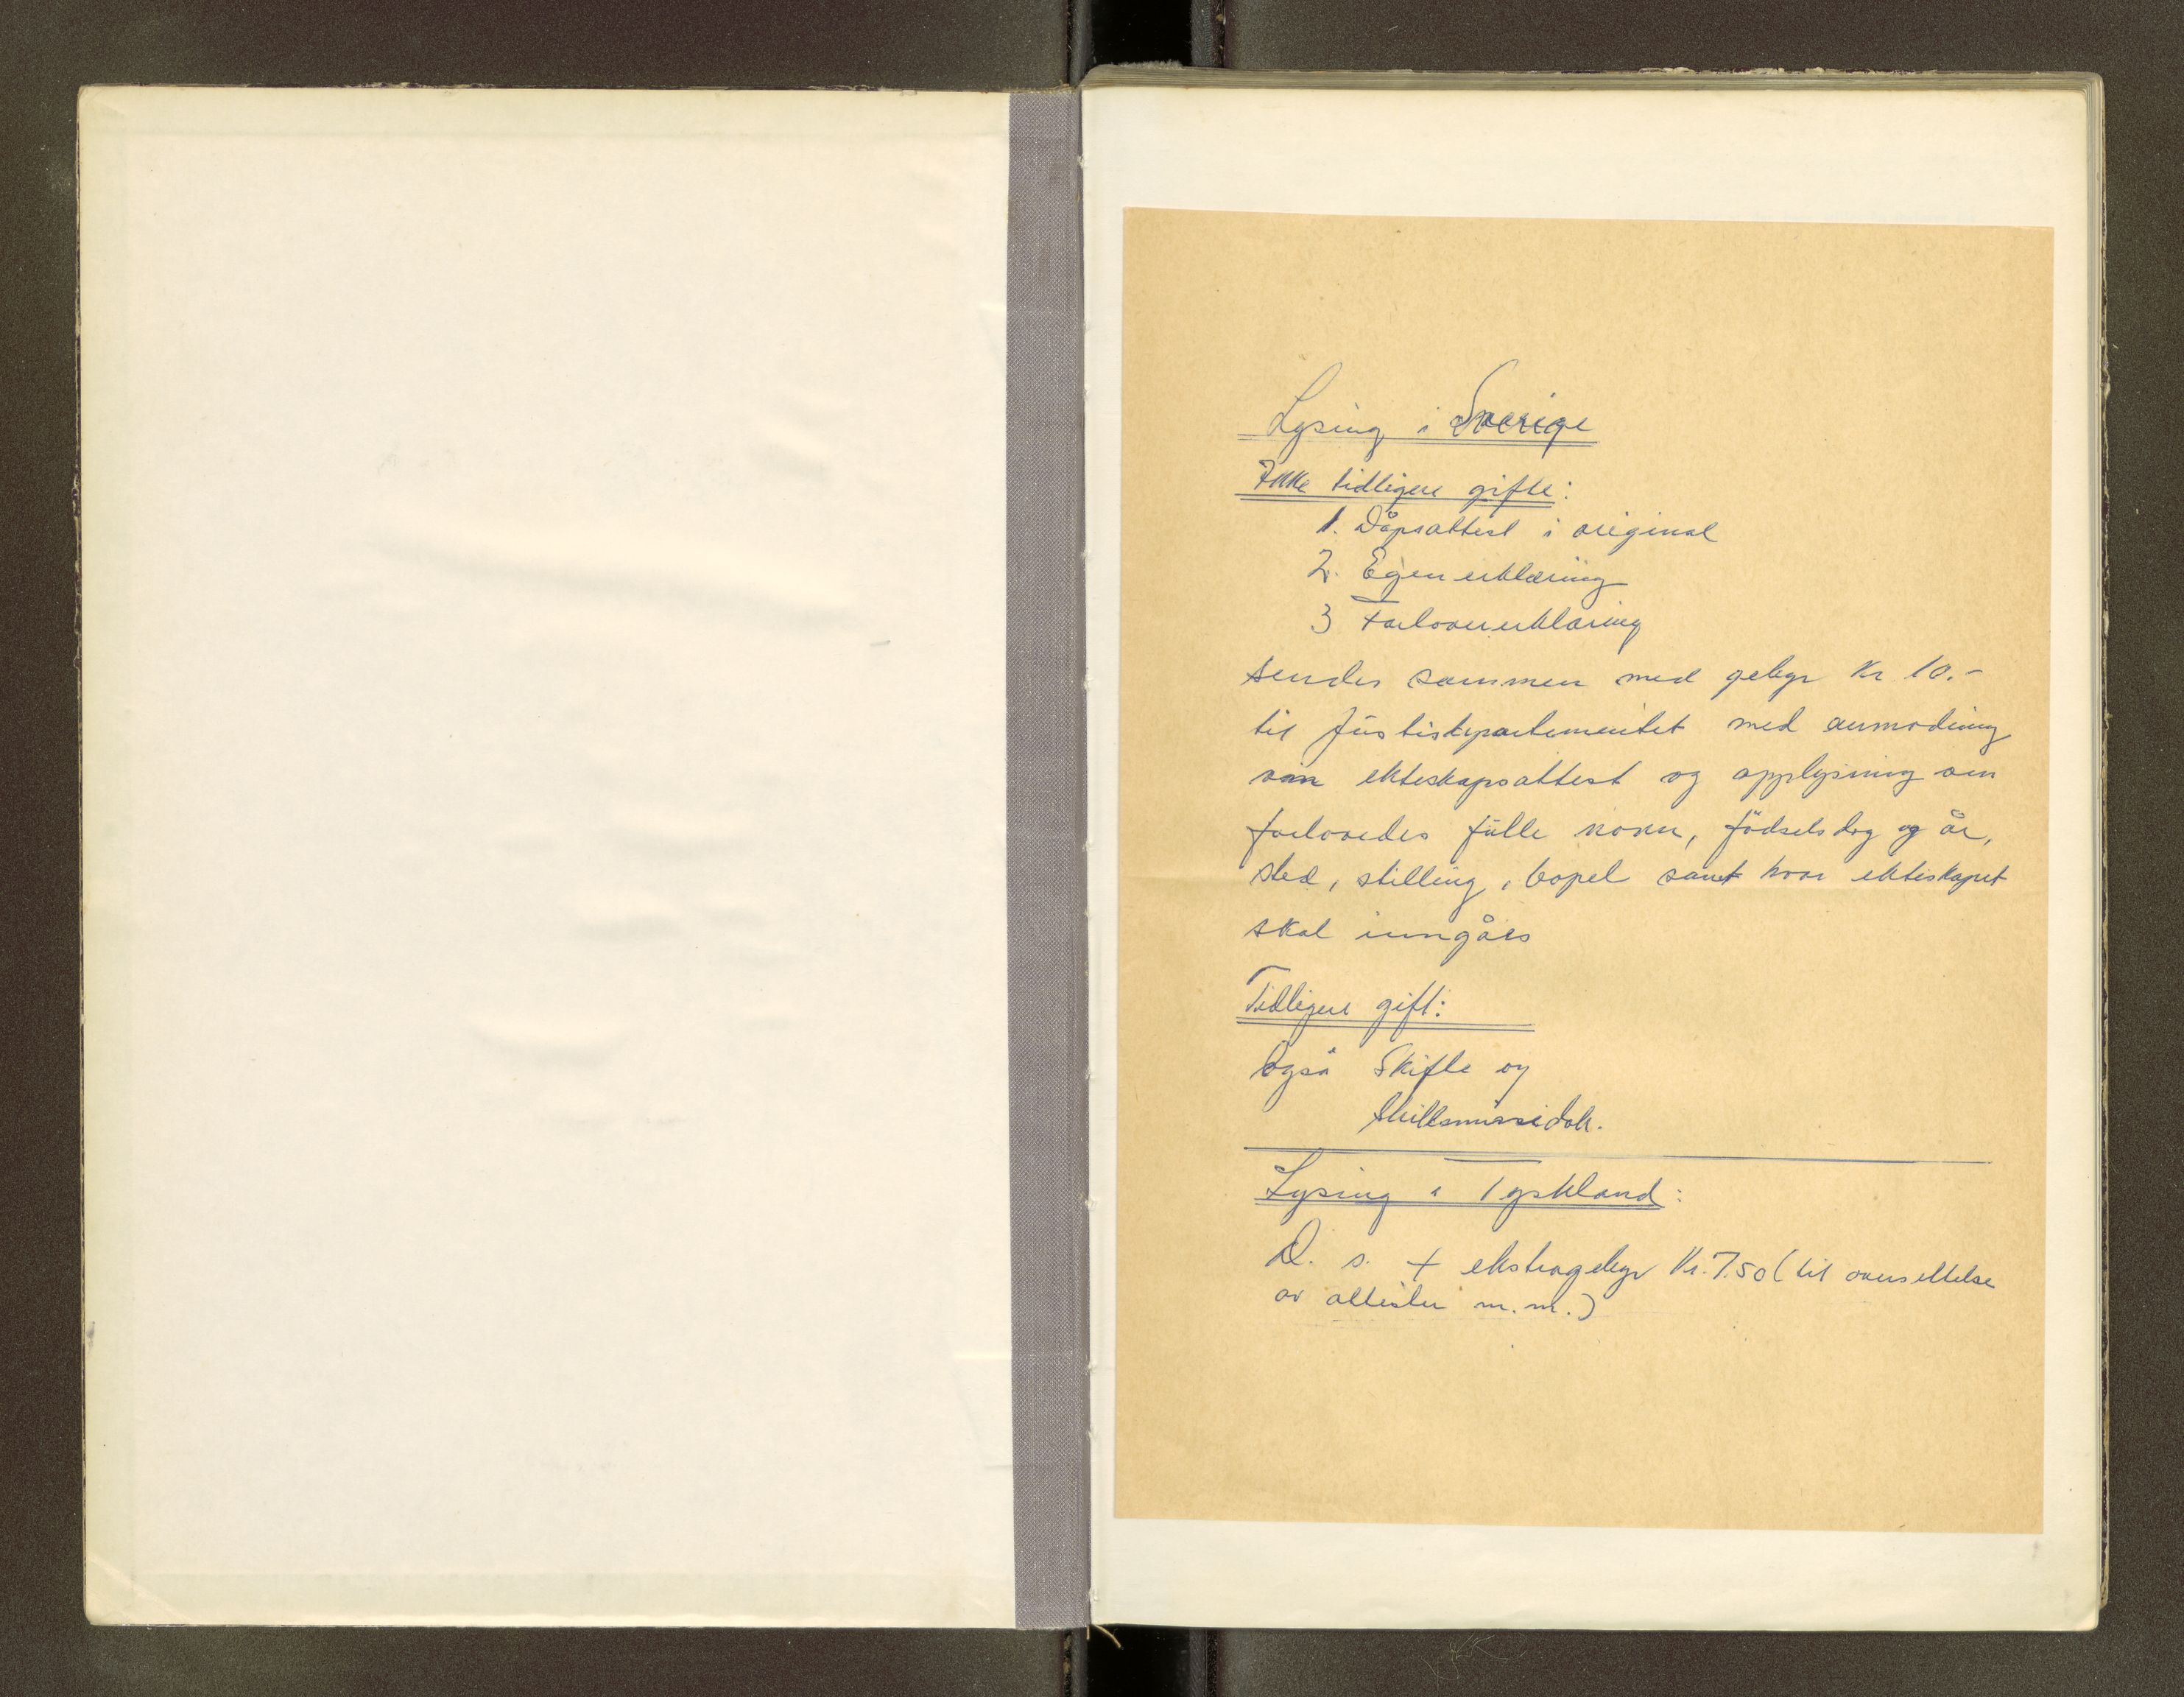 Lysing i Sverige
Ikke tidligere gifte:
1. Dåpsattest i original
2. Egenerklæring
3 Forlovererklæring
sendes sammen med gebyr kr 10.-
til Justisdepartementet med anmodning
om ekteskapsattest og opplysning om
forlovedes fulle navn, födselsdag og år,
sted, stilling, bopel samt hvor ekteskapet
skal inngåes
Tidligere gift:
Også Skifte og
skilsmissedok.
Lysing i Tyskland:
D. s. + ekstragebyr kr. 7.50 (til oversettelse
av attester m.m.)